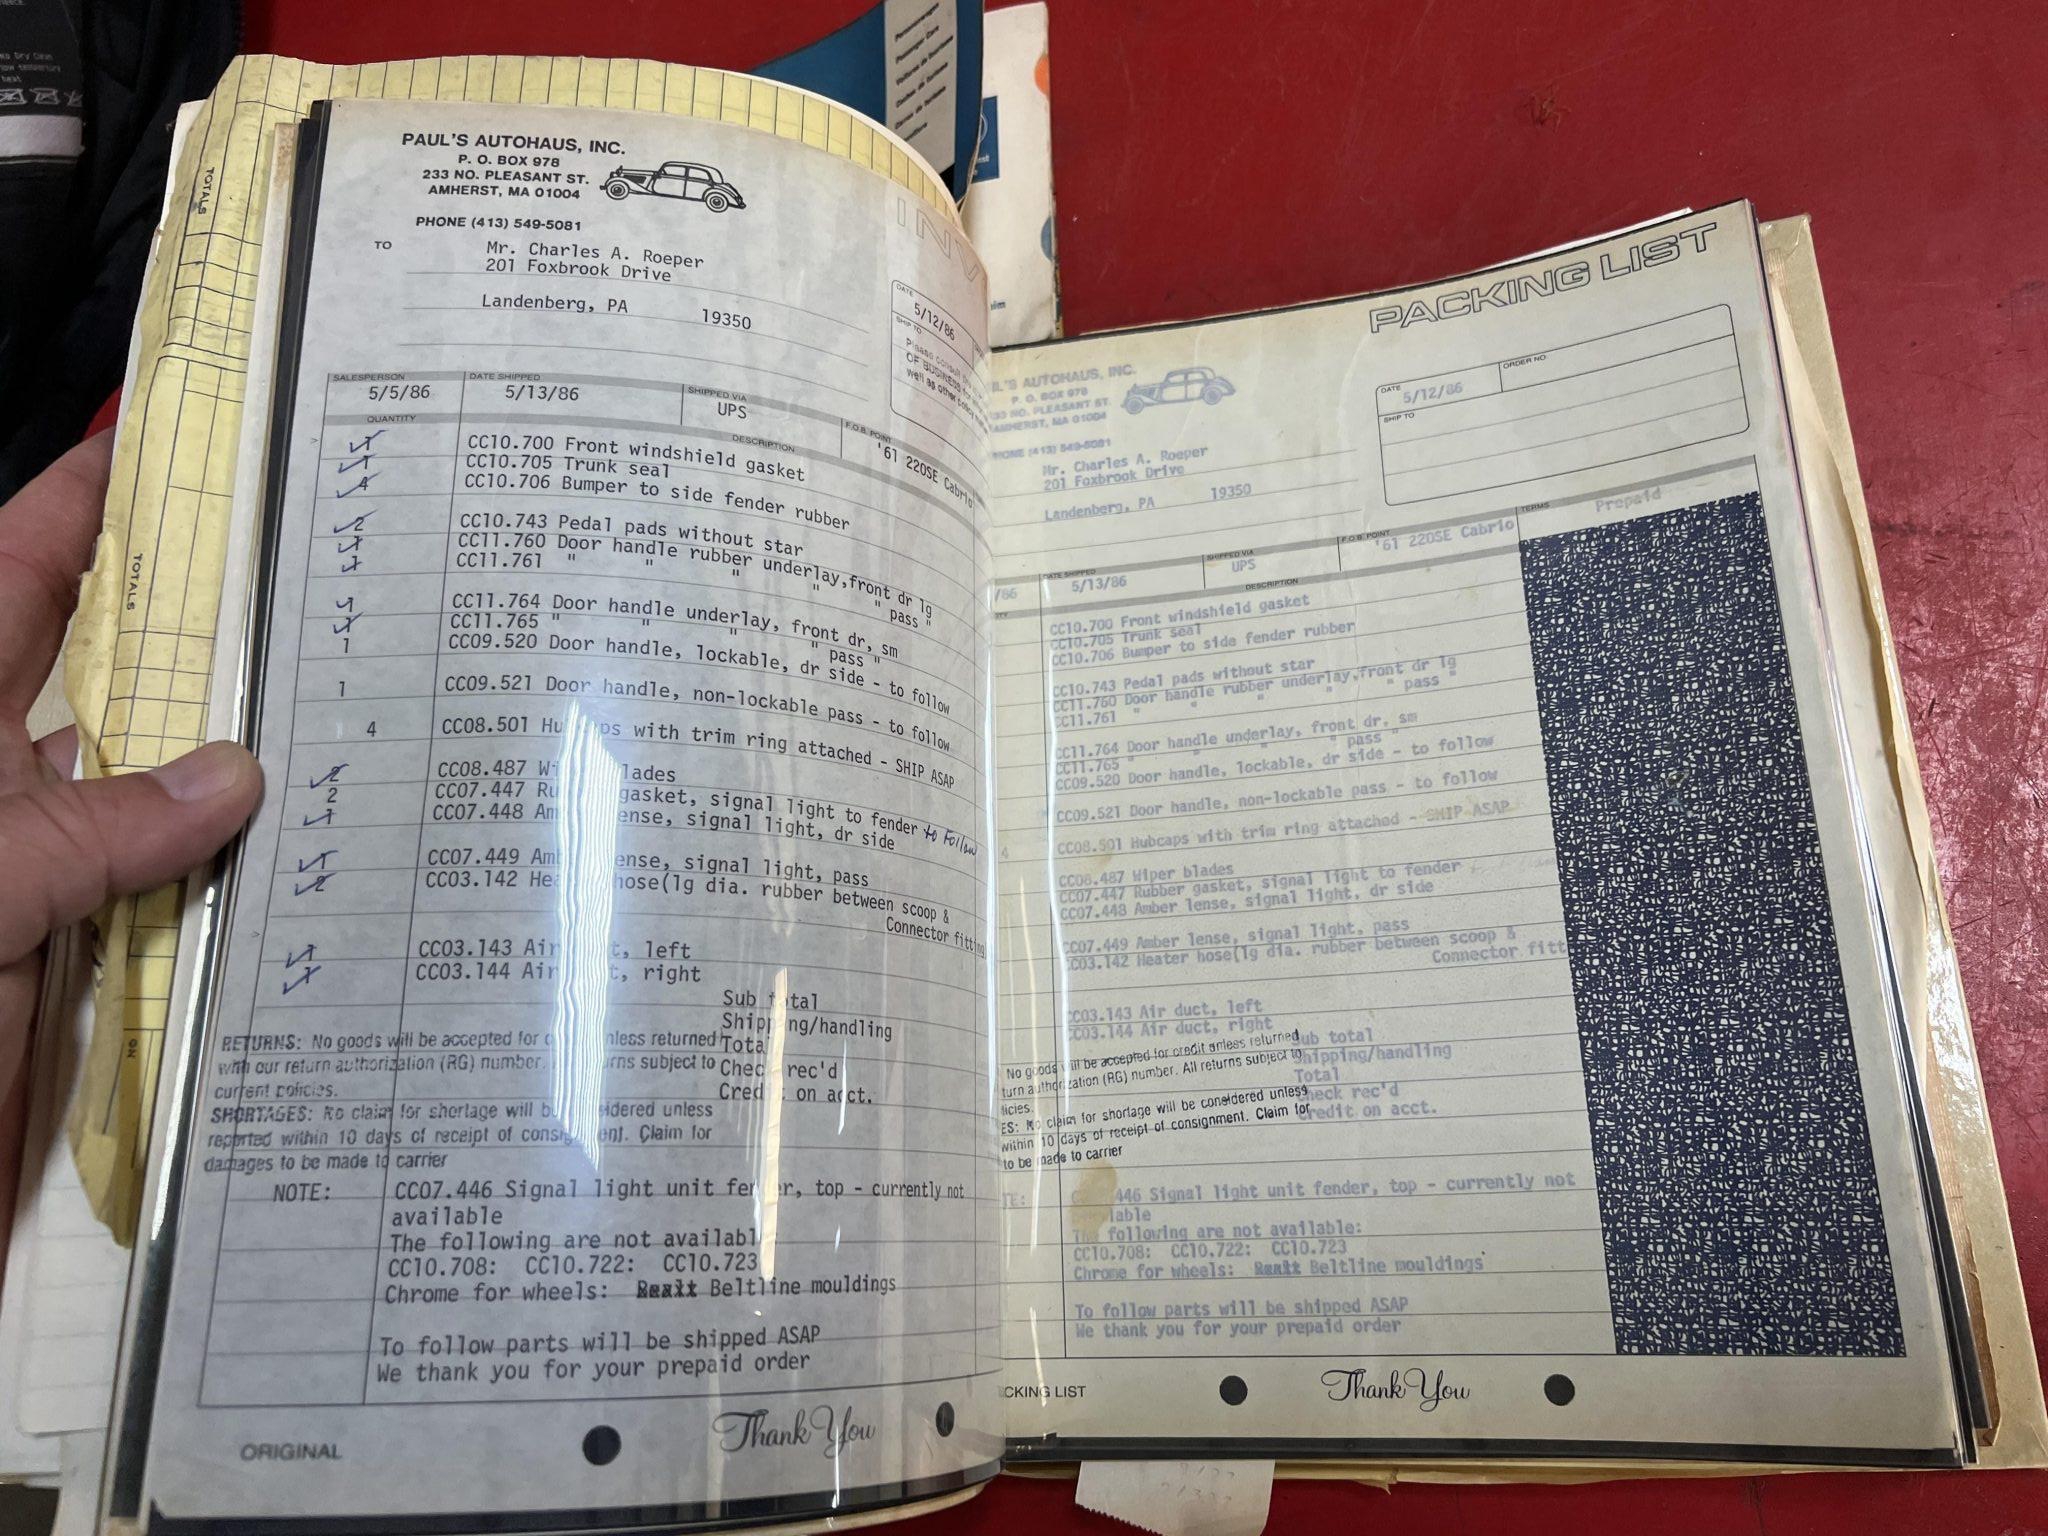 TOTALS
TOTALS
NO
Personenwagen
Passenger Cars
PAUL'S AUTOHAUS, INC.
P. O. BOX 978
233 NO. PLEASANT ST.
AMHERST, MA 01004
PHONE (413) 549-5081
INV
TO
Mr. Charles A. Roeper
201 Foxbrook Drive
Landenberg, PA 19350
DATE
5/12/86
SHIP TO
Please consult
OF BUSINESS
well as other
SALESPERSON DATE SHIPPED SHIPPED VIA F.O.B. POINT
5/5/86 5/13/86 UPS '61 220SE Cabrio
QUANTITY DESCRIPTION
1 CC10.700 Front windshield gasket
1 CC10.705 Trunk seal
4 CC10.706 Bumper to side fender rubber
2 CC10.743 Pedal pads without star
1 CC11.760 Door handle rubber underlay,front dr lg
1 CC11.761 " " " " " pass "
1 CC11.764 Door handle underlay, front dr, sm
1 CC11.765 " " " " pass "
1 CC09.520 Door handle, lockable, dr side - to follow
1 CC09.521 Door handle, non-lockable pass - to follow
4 CC08.501 Hu ps with trim ring attached - SHIP ASAP
2 CC08.487 Wi lades
2 CC07.447 Ru gasket, signal light to fender to Follow
1 CC07.448 Am ense, signal light, dr side
1 CC07.449 Amb ense, signal light, pass
2 CC03.142 Hea hose(lg dia. rubber between scoop &
Connector fitting
1 CC03.143 Air t, left
1 CC03.144 Air t, right
Sub total
Shipping/handling
Total
Check rec'd
Credit on acct.
RETURNS: No goods will be accepted for c unless returned
with our return authorization (RG) number. rns subject to
current policies.
SHORTAGES: No claim for shortage will be sidered unless
reported within 10 days of receipt of consignment. Claim for
damages to be made to carrier
NOTE: CC07.446 Signal light unit fender, top - currently not
available
The following are not availabl
CC10.708: CC10.722: CC10.723
Chrome for wheels: Beltline mouldings
To follow parts will be shipped ASAP
We thank you for your prepaid order
ORIGINAL
Thank You
PACKING LIST
L'S AUTOHAUS, INC.
P. O. BOX 978
233 NO. PLEASANT ST.
AMHERST, MA 01004
HONE (413) 549-5081
Mr. Charles A. Roeper
201 Foxbrook Drive
Landenberg, PA 19350
DATE
5/12/86
ORDER NO
SHIP TO
DATE SHIPPED SHIPPED VIA F.O.B. POINT TERMS
/86 5/13/86 UPS '61 220SE Cabrio Prepaid
TY DESCRIPTION
CC10.700 Front windshield gasket
CC10.705 Trunk seal
CC10.706 Bumper to side fender rubber
CC10.743 Pedal pads without star
CC11.760 Door handle rubber underlay,front dr lg
CC11.761 " " " " pass "
CC11.764 Door handle underlay, front dr, sm
CC11.765 " " " " pass "
CC09.520 Door handle, lockable, dr side - to follow
CC09.521 Door handle, non-lockable pass - to follow
4 CC08.501 Hubcaps with trim ring attached - SHIP ASAP
CC08.487 Wiper blades
CC07.447 Rubber gasket, signal light to fender
CC07.448 Amber lense, signal light, dr side
CC07.449 Amber lense, signal light, pass
CC03.142 Heater hose(lg dia. rubber between scoop &
Connector fitt
CC03.143 Air duct, left
CC03.144 Air duct, right
Sub total
Shipping/handling
Total
Check rec'd
Credit on acct.
No goods will be accepted for credit unless returned
turn authorization (RG) number. All returns subject to
licies.
ES: No claim for shortage will be considered unless
within 10 days of receipt of consignment. Claim for
to be made to carrier
TE: C 446 Signal light unit fender, top - currently not
lable
The following are not available:
CC10.708: CC10.722: CC10.723
Chrome for wheels: Beltline mouldings
To follow parts will be shipped ASAP
We thank you for your prepaid order
CKING LIST
Thank You